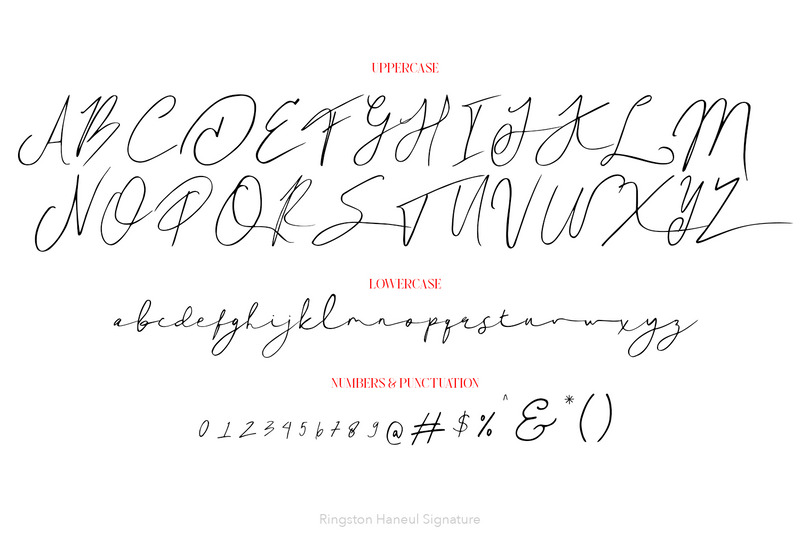 UPPERCASE
ABCDEFGHIJKLM
NOPQRSTUVWXYZ
LOWERCASE
abcdefghijklmnopqrstuvwxyz
NUMBERS & PUNCTUATION
0123456789@#$%^&*()
Ringston Haneul Signature